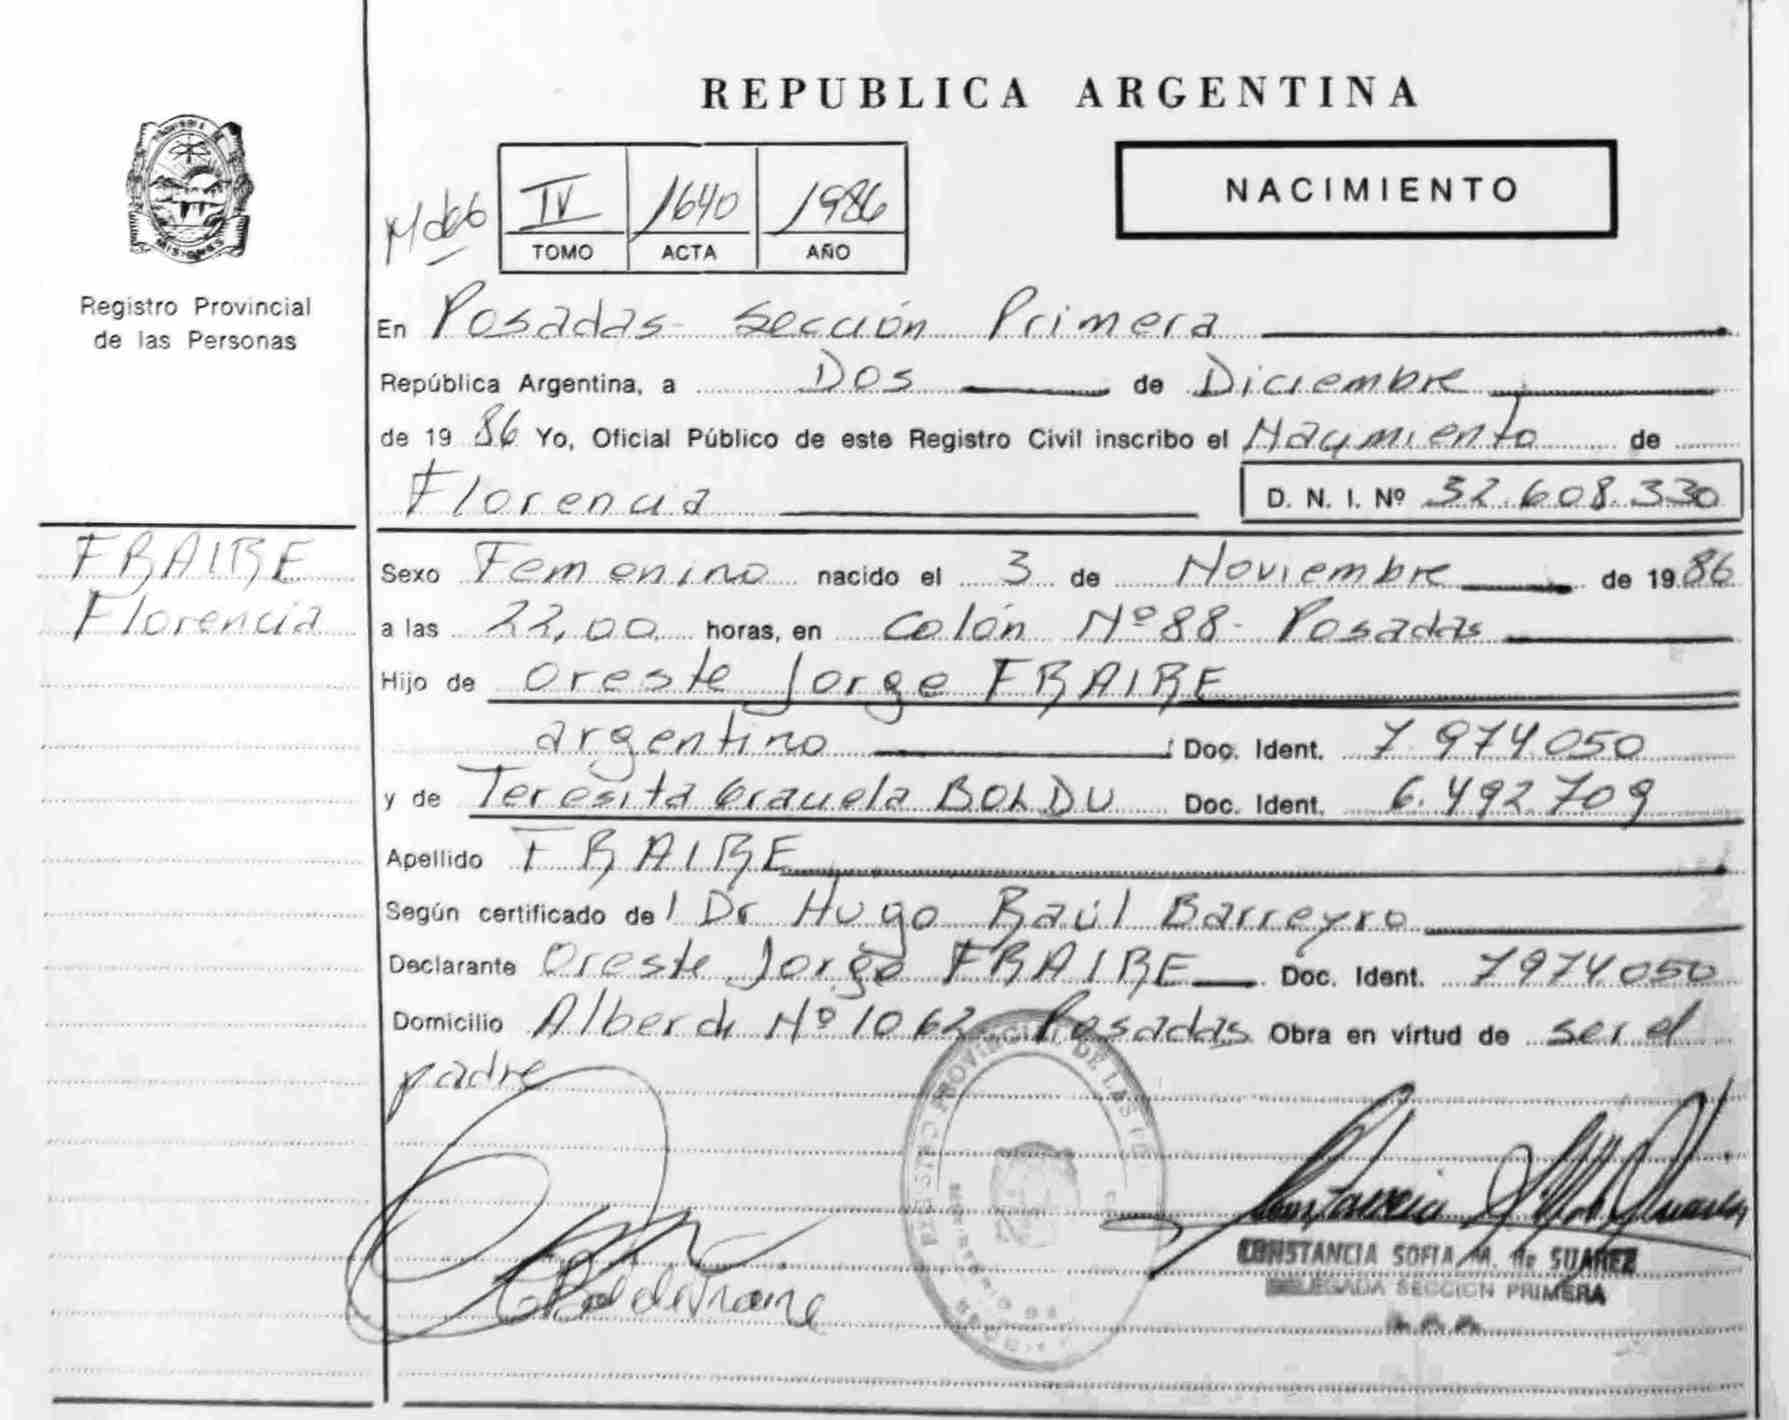 REPUBLICA ARGENTINA
NACIMIENTO
IV 1640 1986
TOMO ACTA AÑO
Registro Provincial
de las Personas
En Posadas- Sección Primera
República Argentina, a Dos de Diciembre
de 19 86 Yo, Oficial Público de este Registro Civil inscribo el Nacimiento de
Florencia D. N. I. Nº 32.608.330
FRAIRE
Florencia
Sexo Femenino nacido el 3 de Noviembre de 19 86
a las 22,00 horas, en Colón Nº 88- Posadas
Hijo de Oreste Jorge FRAIRE
argentino Doc. Ident. 7.974.050
y de Teresita Graciela BOLDU Doc. Ident. 6.492.709
Apellido FRAIRE
Según certificado del Dr Hugo Raúl Barreyro
Declarante Oreste Jorge FRAIRE Doc. Ident. 7974050
Domicilio Alberdi Nº 1062 Posadas Obra en virtud de ser el
padre
REGISTRO PROVINCIAL DE LAS
de Fraire
CONSTANCIA SOFIA M. de SUAREZ
DELEGADA SECCION PRIMERA